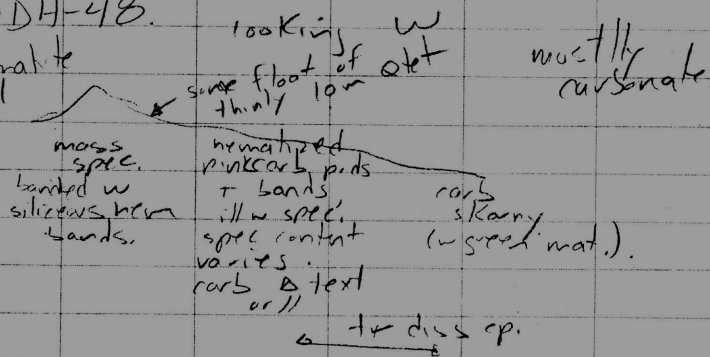 DH-48.
looking W
mostly
carbonate
some float of Qtet
thinly 10m
mass
spec.
banded w
siliceous hem
bands.
hematized
pink carb pods
+ bands
ill w spec.
spec content
varies.
carb Δ text
or //
carb
skarny
(w green mat.).
tr diss cp.